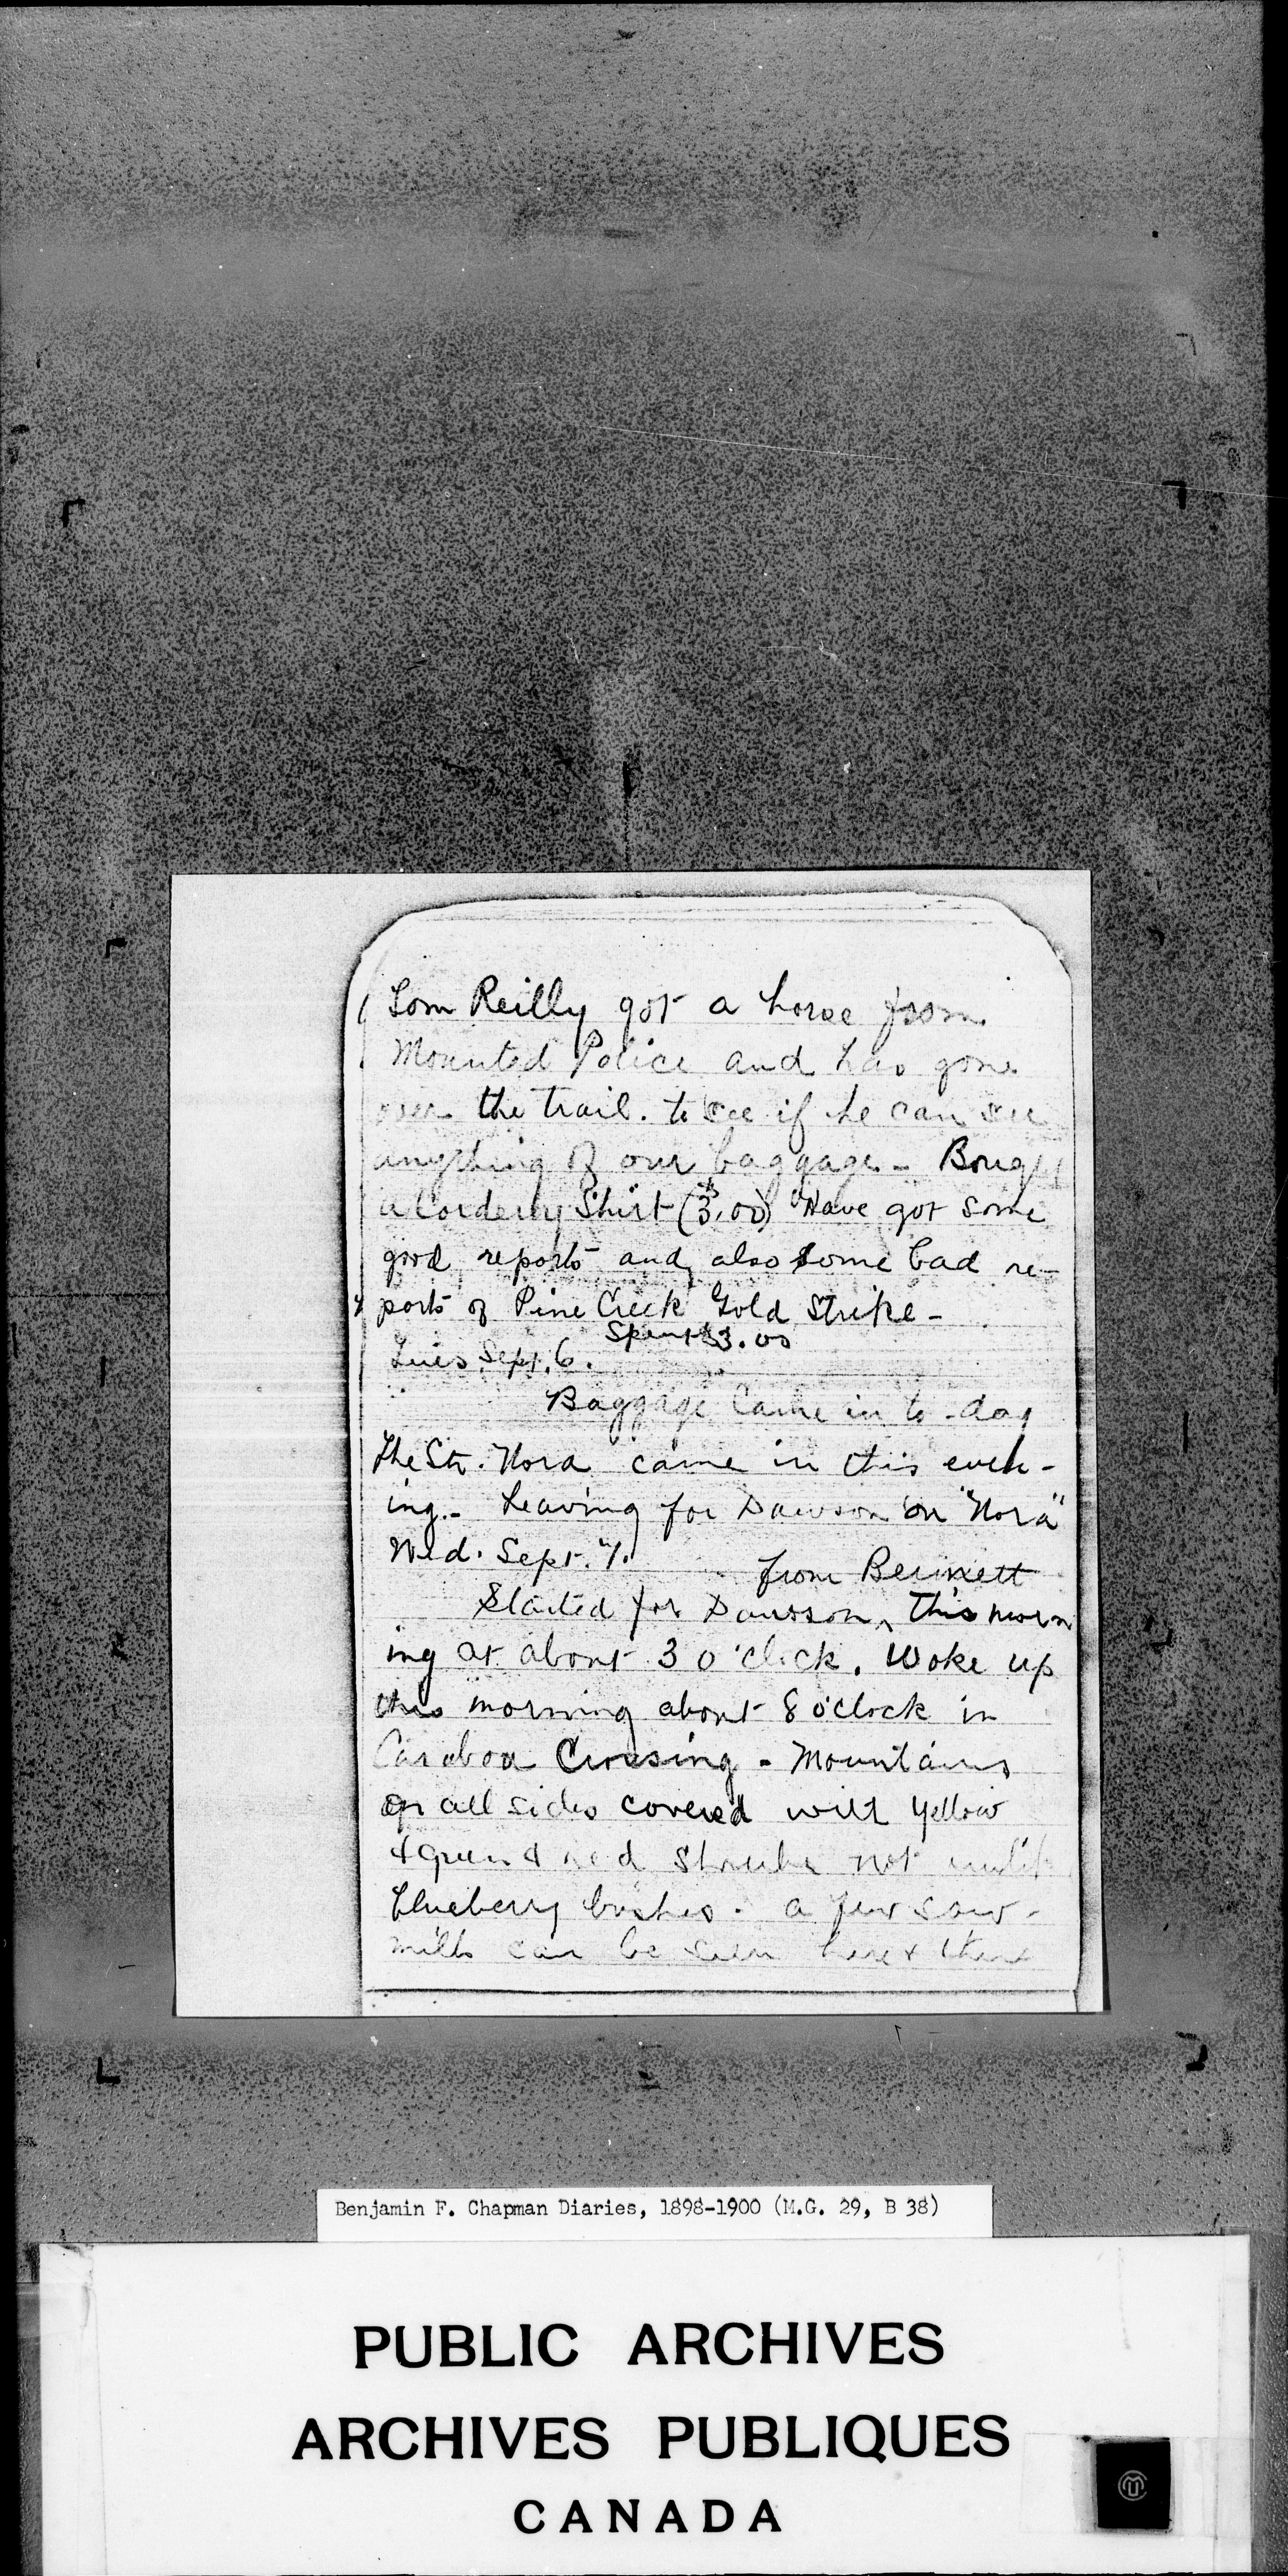 Tom Reilly got a horse from
Mounted Police and has gone
over the trail. to see if he can see
anything of our baggage - Bought
a Corderoy Shirt ($3.00) Have got some
good reports and also some bad re-
ports of Pine Creek Gold Strike -
Spent $3.00
Tues Sept. 6.
Baggage Came in to-day
The Str. Nora came in this even-
ing - Leaving for Dawson on "Nora"
Wed. Sept. 7.
from Bennett
Started for Dawson, this morn
ing at about 3 o'clock. Woke up
this morning about 8 o'clock in
Caraboa Crossing - Mountains
on all sides covered with yellow
& green & red shrubs not unlike
blueberry bushes. a few saw-
mills can be seen here & there
Benjamin F. Chapman Diaries, 1898-1900 (M.G. 29, B 38)
PUBLIC ARCHIVES
ARCHIVES PUBLIQUES
CANADA